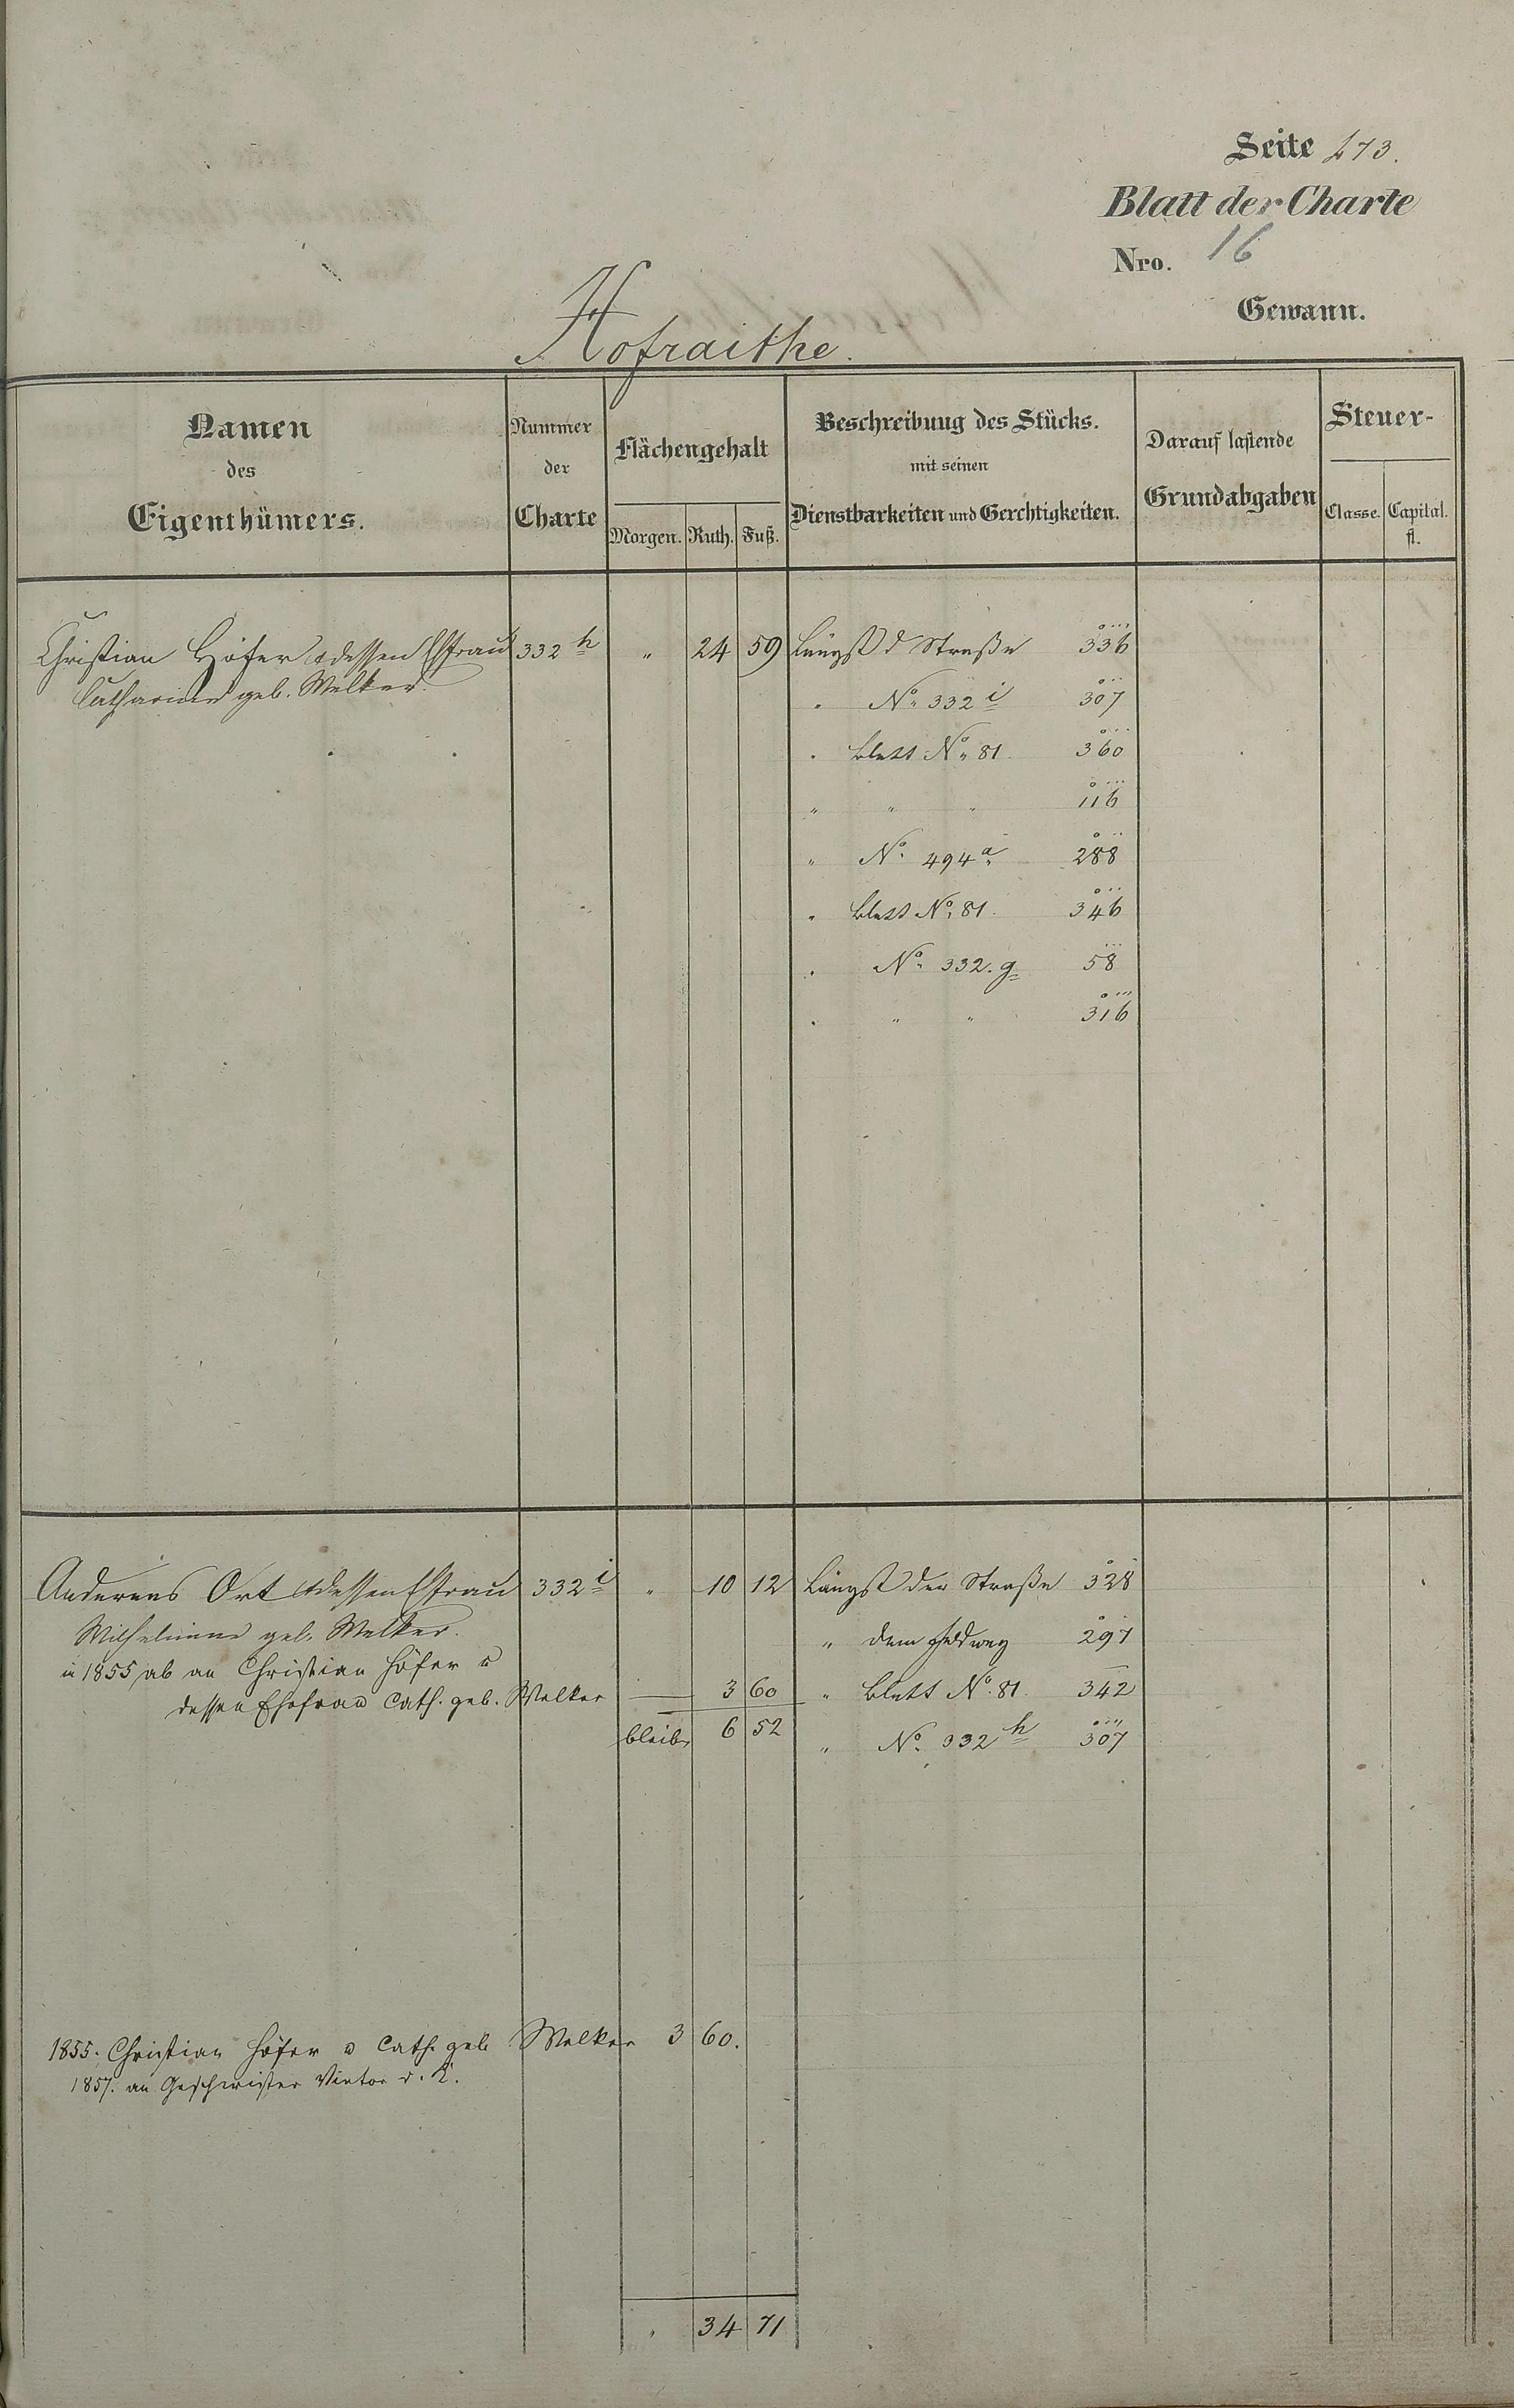 Seite 473.
Blatt der Charte
Nro. 16
Gewann.
Hofraithe.
Namen
des
Eigenthümers.
Nummer
der
Charte
Flächengehalt
Morgen. Ruth. Fuß.
Beschreibung des Stücks.
mit seinen
Dienstbarkeiten und Gerchtigkeiten.
Darauf lastende
Grundabgaben
Steuer-
Classe. Capital.
fl.
Christian Höfer & dessen Ehfrau 332 h " 24 59 Längst d Straße 336
Catharine geb. Welker.
" No. 332 i 307
" Blatt No. 81. 360
" " " 116
" No. 494 a 288
" Blatt No. 81. 346
" No. 332. g 58
" " " 316
Andereas Ort & dessen Ehfrau 332 i " 10 12 Längst der Straße 328
Wilhelmine geb. Welker. " dem Feldweg 297
in 1855 ab an Christian Höfer u
dessen Ehefrau Cath. geb. Welker — 3 60 " Blatt No. 81. 342
bleibt 6 52 " No. 332 h 307
1855. Christian Höfer u Cath. geb. Welker 3 60.
1857. an Geschwister Vietor
" 34 71